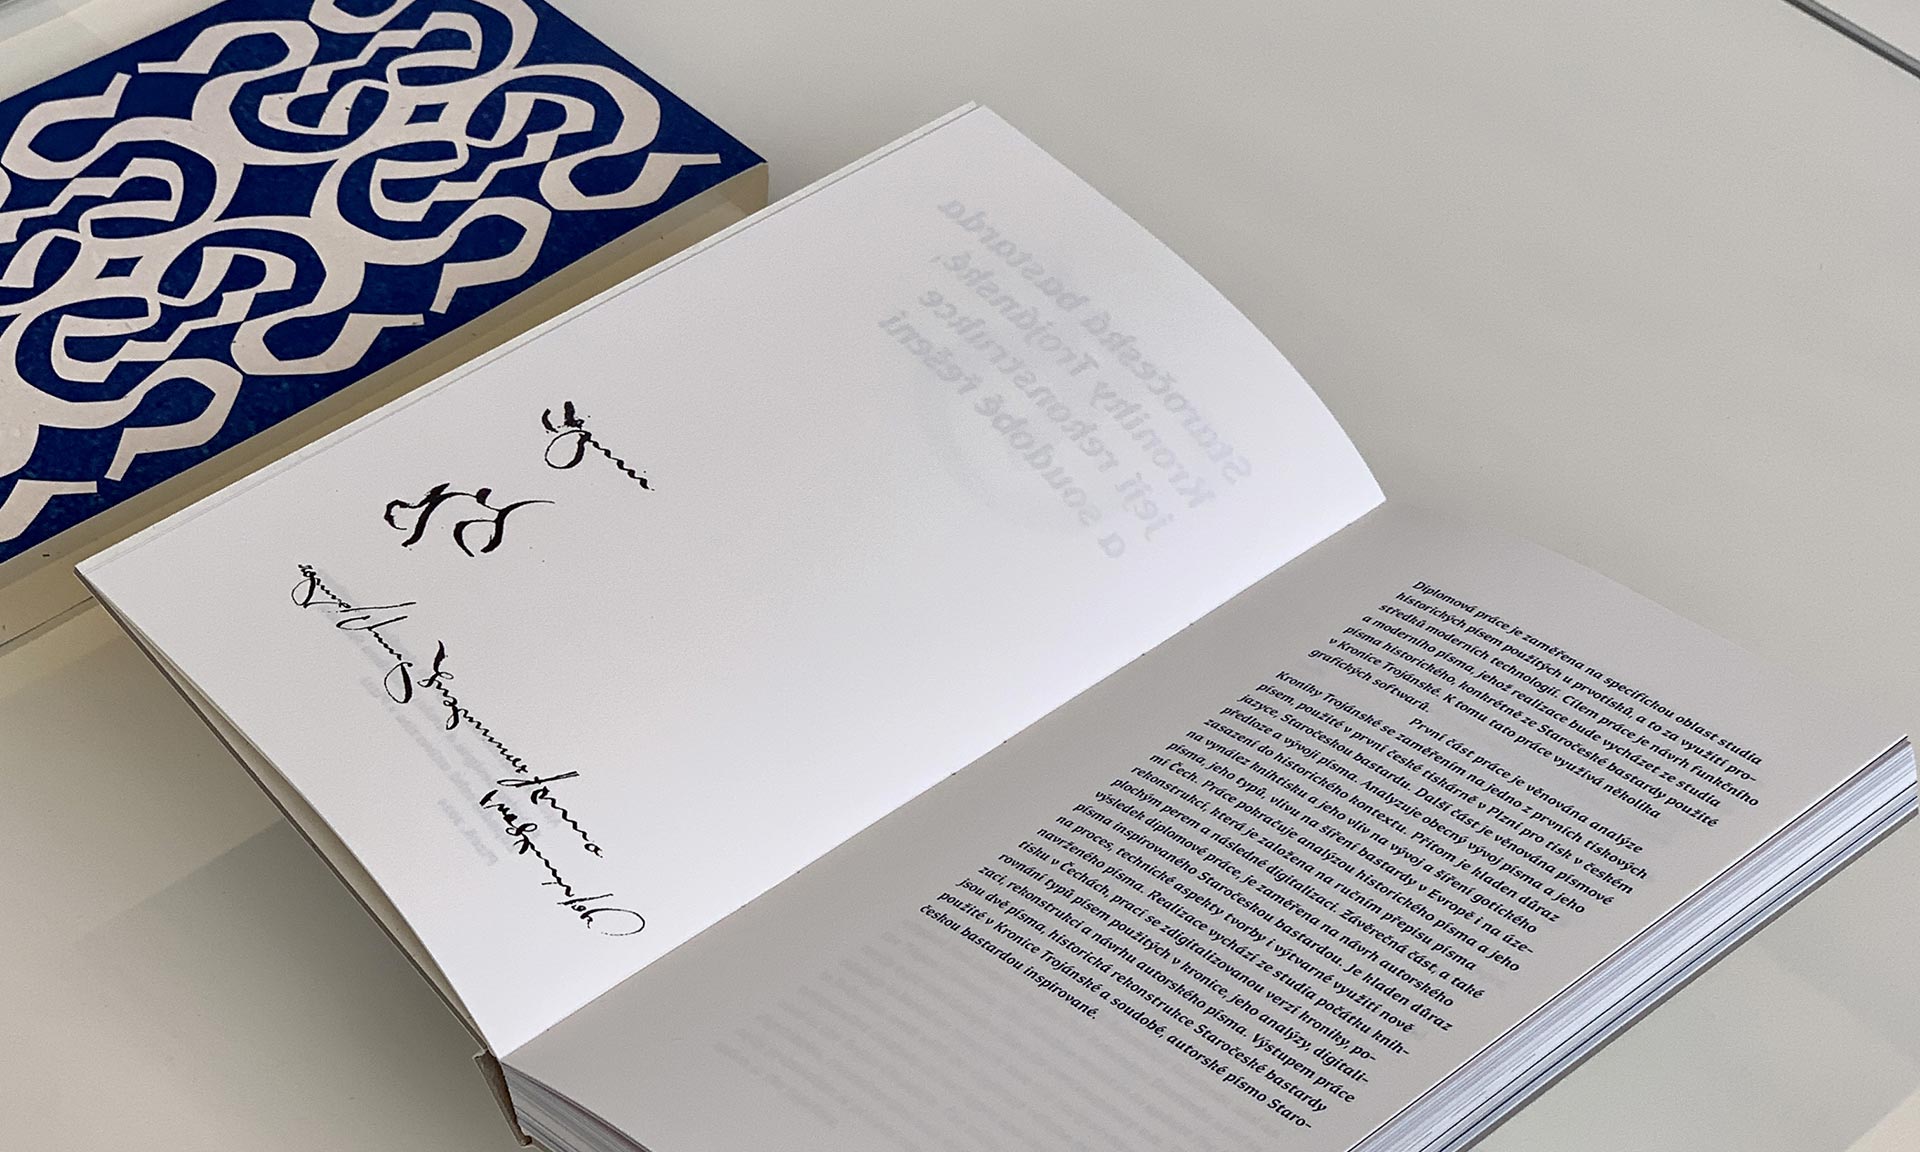 Staročeská bastarda
Kroniky Trojánské,
její rekonstrukce
a soudobé řešení
Diplomová práce je zaměřena na specifickou oblast studia
historických písem použitých u prvotisků, a to za využití pro-
středků moderních technologií. Cílem práce je návrh funkčního
a moderního písma, jehož realizace bude vycházet ze studia
písma historického, konkrétně ze Staročeské bastardy použité
v Kronice Trojánské. K tomu tato práce využívá několika
grafických softwarů.
První část práce je věnována analýze
Kroniky Trojánské se zaměřením na jedno z prvních tiskových
písem, použité v první české tiskárně v Plzni pro tisk v českém
jazyce, Staročeskou bastardu. Další část je věnována písmové
předloze a vývoji písma. Analyzuje obecný vývoj písma a jeho
zasazení do historického kontextu. Přitom je kladen důraz
na vynález knihtisku a jeho vliv na vývoj a šíření gotického
písma, jeho typů, vlivu na šíření bastardy v Evropě i na úze-
mí Čech. Práce pokračuje analýzou historického písma a jeho
rekonstrukcí, která je založena na ručním přepisu písma
plochým perem a následné digitalizaci. Závěrečná část, a také
výsledek diplomové práce, je zaměřena na návrh autorského
písma inspirovaného Staročeskou bastardou. Je kladen důraz
na proces, technické aspekty tvorby i výtvarné využití nově
navrženého písma. Realizace vychází ze studia počátku knih-
tisku v Čechách, prací se zdigitalizovanou verzí kroniky, po-
rovnání typů písem použitých v kronice, jeho analýzy, digitali-
zaci, rekonstrukci a návrhu autorského písma. Výstupem práce
jsou dvě písma, historická rekonstrukce Staročeské bastardy
použité v Kronice Trojánské a soudobé, autorské písmo Staro-
českou bastardou inspirované.